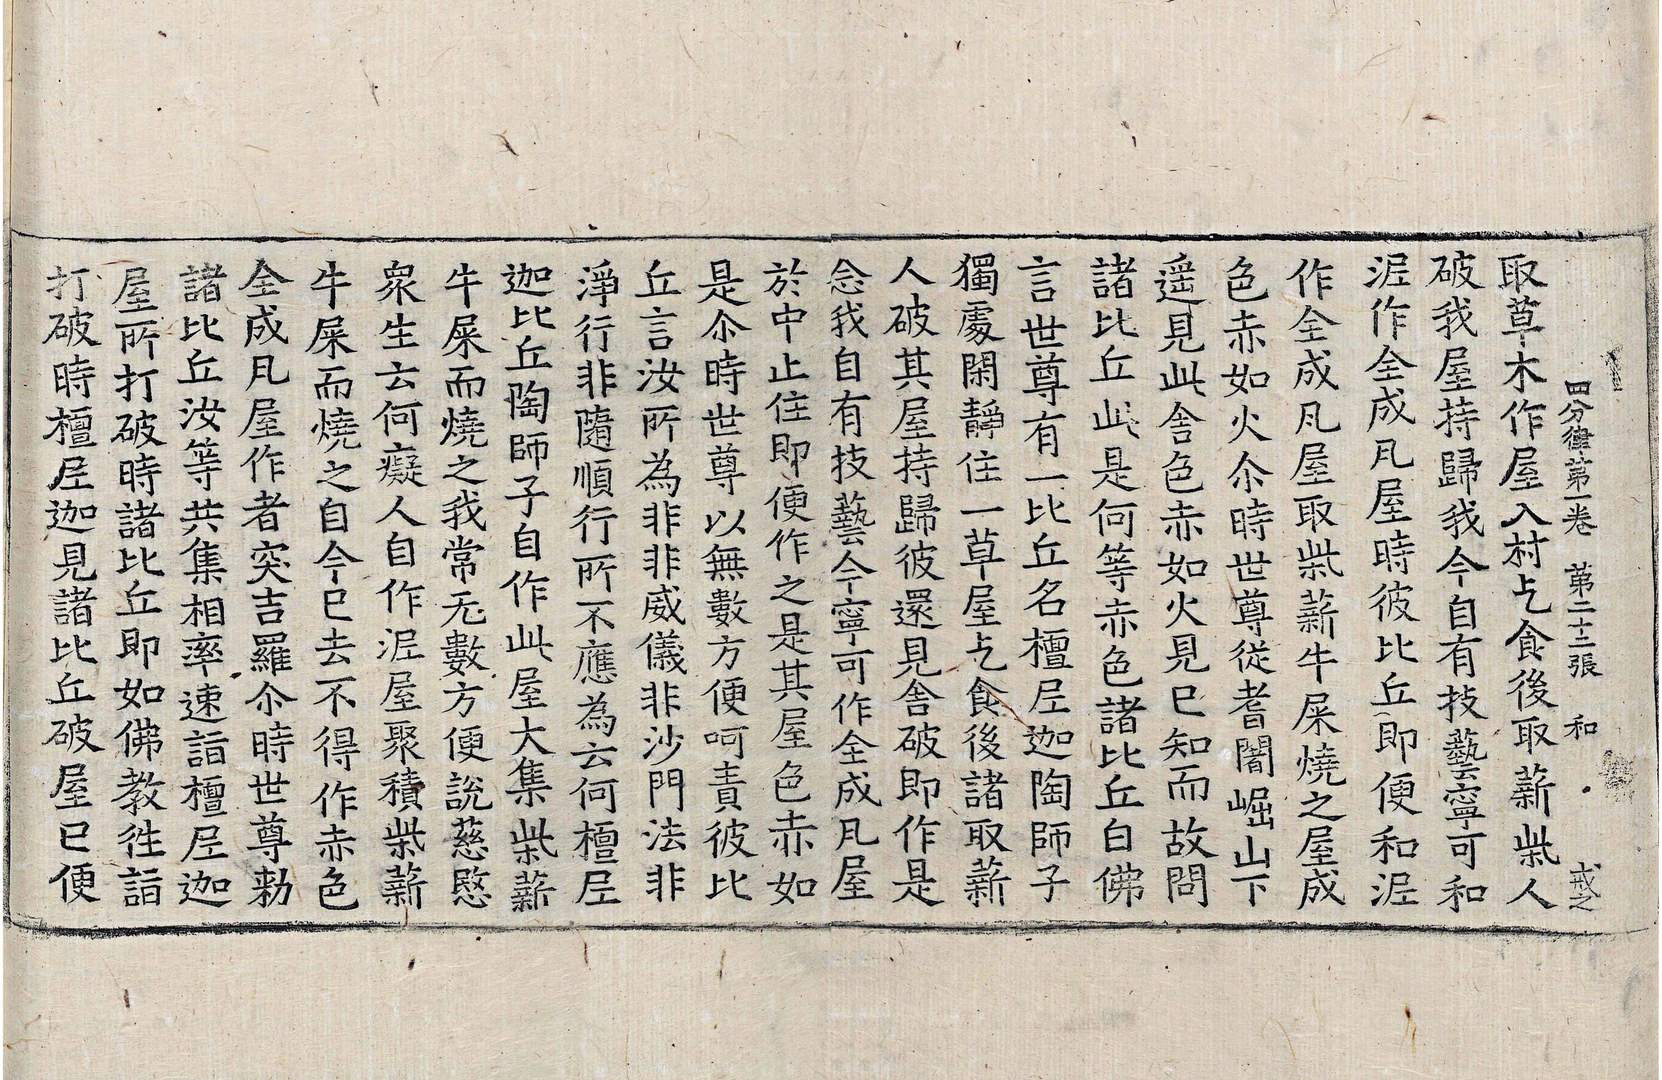 四分律第一卷 第二十二張 和 戒之
取草木作屋入村乞食後取薪柴人
破我屋持歸我今自有技藝寧可和
泥作全成凡屋時彼比丘即便和泥
作全成凡屋取柴薪牛屎燒之屋成
色赤如火尒時世尊從耆闍崛山下
遥見此舍色赤如火見已知而故問
諸比丘此是何等赤色諸比丘白佛
言世尊有一比丘名檀𡰱迦陶師子
獨處閑靜住一草屋乞食後諸取薪
人破其屋持歸彼還見舍破即作是
念我自有技藝今寧可作全成凡屋
於中止住即便作之是其屋色赤如
是尒時世尊以無數方便呵責彼比
丘言汝所為非非威儀非沙門法非
淨行非隨順行所不應為云何檀𡰱
迦比丘陶師子自作此屋大集柴薪
牛屎而燒之我常无數方便說慈愍
衆生云何癡人自作泥屋聚積柴薪
牛屎而燒之自今已去不得作赤色
全成凡屋作者突吉羅尒時世尊勑
諸比丘汝等共集相率速詣檀𡰱迦
屋所打破時諸比丘即如佛教往詣
打破時檀𡰱迦見諸比丘破屋已便